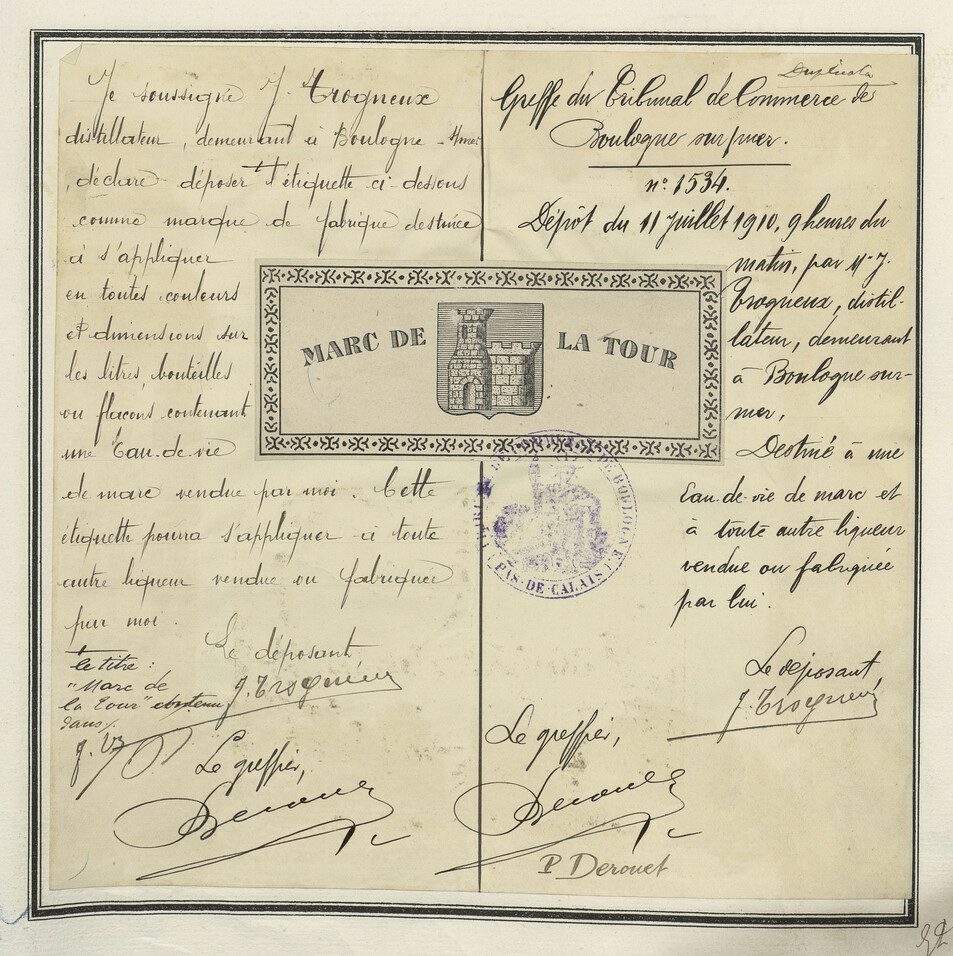 Je soussigné J. Trogneux
distillateur, demeurant à Boulogne s/mer
, déclare déposer ⸆ l'étiquette ci-dessous
comme marque de fabrique destinée
à s'appliquer
en toutes couleurs
et dimensions sur
les litres, bouteilles
ou flacons contenant
une Eau-de-vie
de marc vendue par moi. Cette
étiquette pourra s'appliquer à toute
autre liqueur vendue ou fabriquée
par moi.
Le déposant
J. Trogneux
⸆ le titre :
"Marc de
la Tour"
dans
Le greffier,
MARC DE LA TOUR
Duplicata
Greffe du Tribunal de Commerce de
Boulogne sur mer.
n° 1534.
Dépôt du 11 Juillet 1910, 9 heures du
matin, par M. J.
Trogneux, distil-
lateur, demeurant
à Boulogne sur-
mer,
Destiné à une
Eau-de-vie de marc et
à toute autre liqueur
vendue ou fabriquée
par lui.
Le déposant,
J. Trogneux
Le greffier,
Derouet
P Derouet
DE BOULOGNE
(PAS-DE-CALAIS)